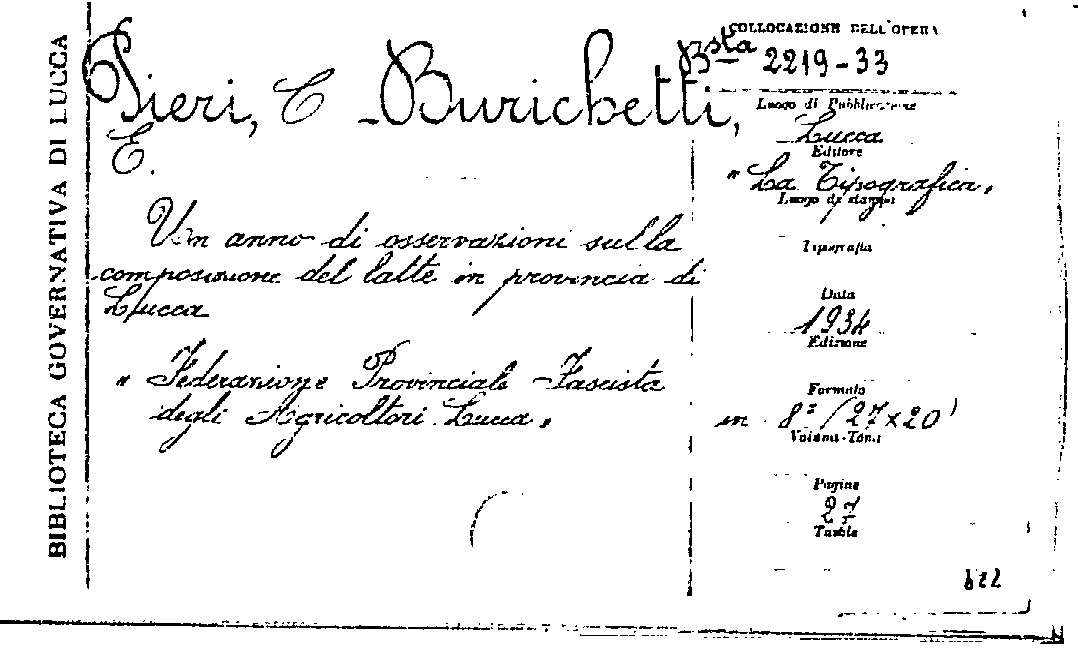 BIBLIOTECA GOVERNATIVA DI LUCCA
Pieri, E - Burichetti,
E.
Un anno di osservazioni sulla
composizione del latte in provincia di
Lucca
" Federazione Provinciale Fascista
degli Agricoltori Lucca "
COLLOCAZIONE DELL'OPERA
Bsta 2219-33
Luogo di Pubblicazione
Lucca
Editore
" La Tipografica "
Luogo di stampa
Tipografia
Data
1934
Edizione
Formato
in 8° (27x20)
Volume-Tomi
Pagine
27
Tavole